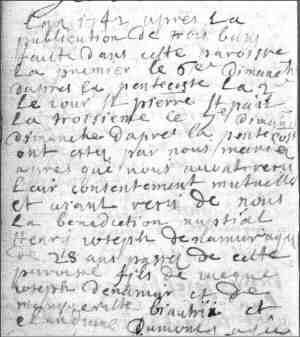 L'an 1742 apres La
publication de trois bans
faite dans cette paroisse
La premier le 6e dimanch
dapres la pentecoste La 2e
Le jour St pierre St paul
La troisieme le 7e dimanch
dimanche dapres la pentecos
ont estez par nous mariez
apres que nous avons receu
leur consentement mutuelle
et aiant receus de nous
La benediction nuptial
Henry joseph denamur agé
de 28 ans passes de cette
paroisse fils de
joseph denamur et de
marguerite et
et dumont agée